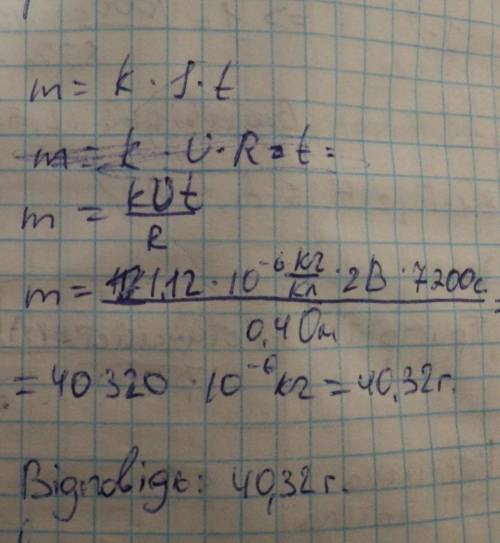 m = k · I · t
m = k U · R · t =
m = kUt
R
m = 1,12 · 10⁻⁶ кг/кл · 2В · 7200с. =
0,4 Ом
= 40 320 · 10⁻⁶ кг = 40,32 г.
Відповідь: 40,32 г.